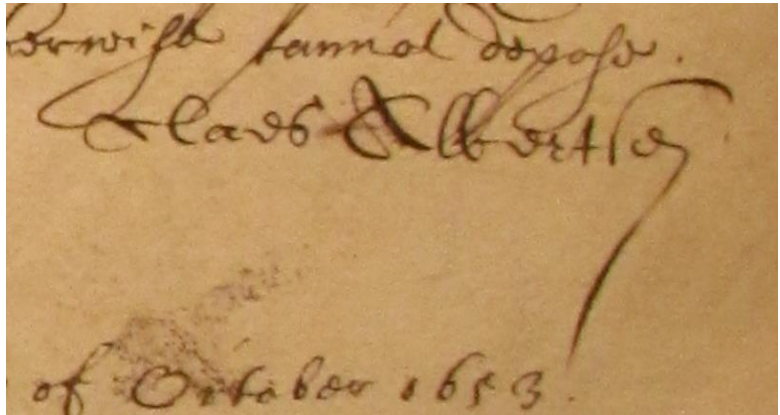 erwise cannot depose.
Claes Albertsen
of October 1653.